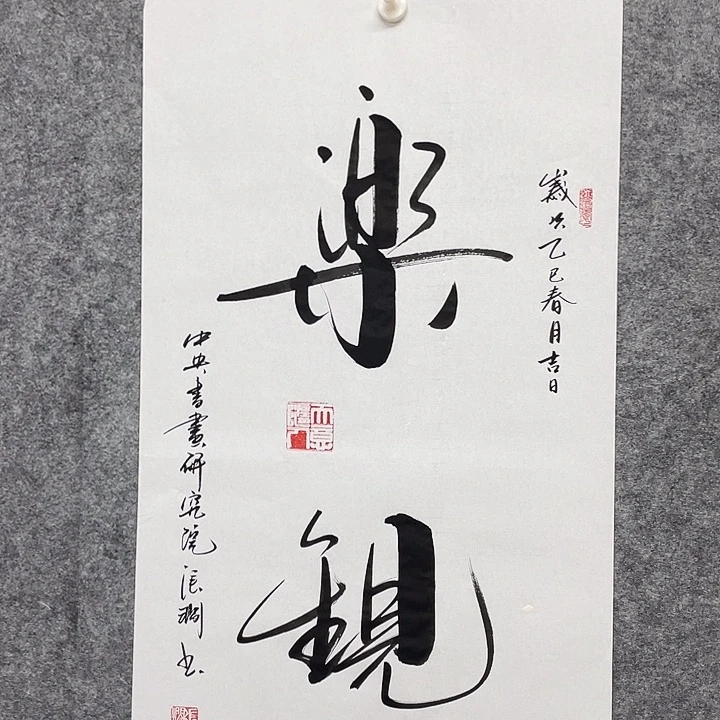 樂觀
歲次乙巳春月吉日
中央書畫研究院張剛書